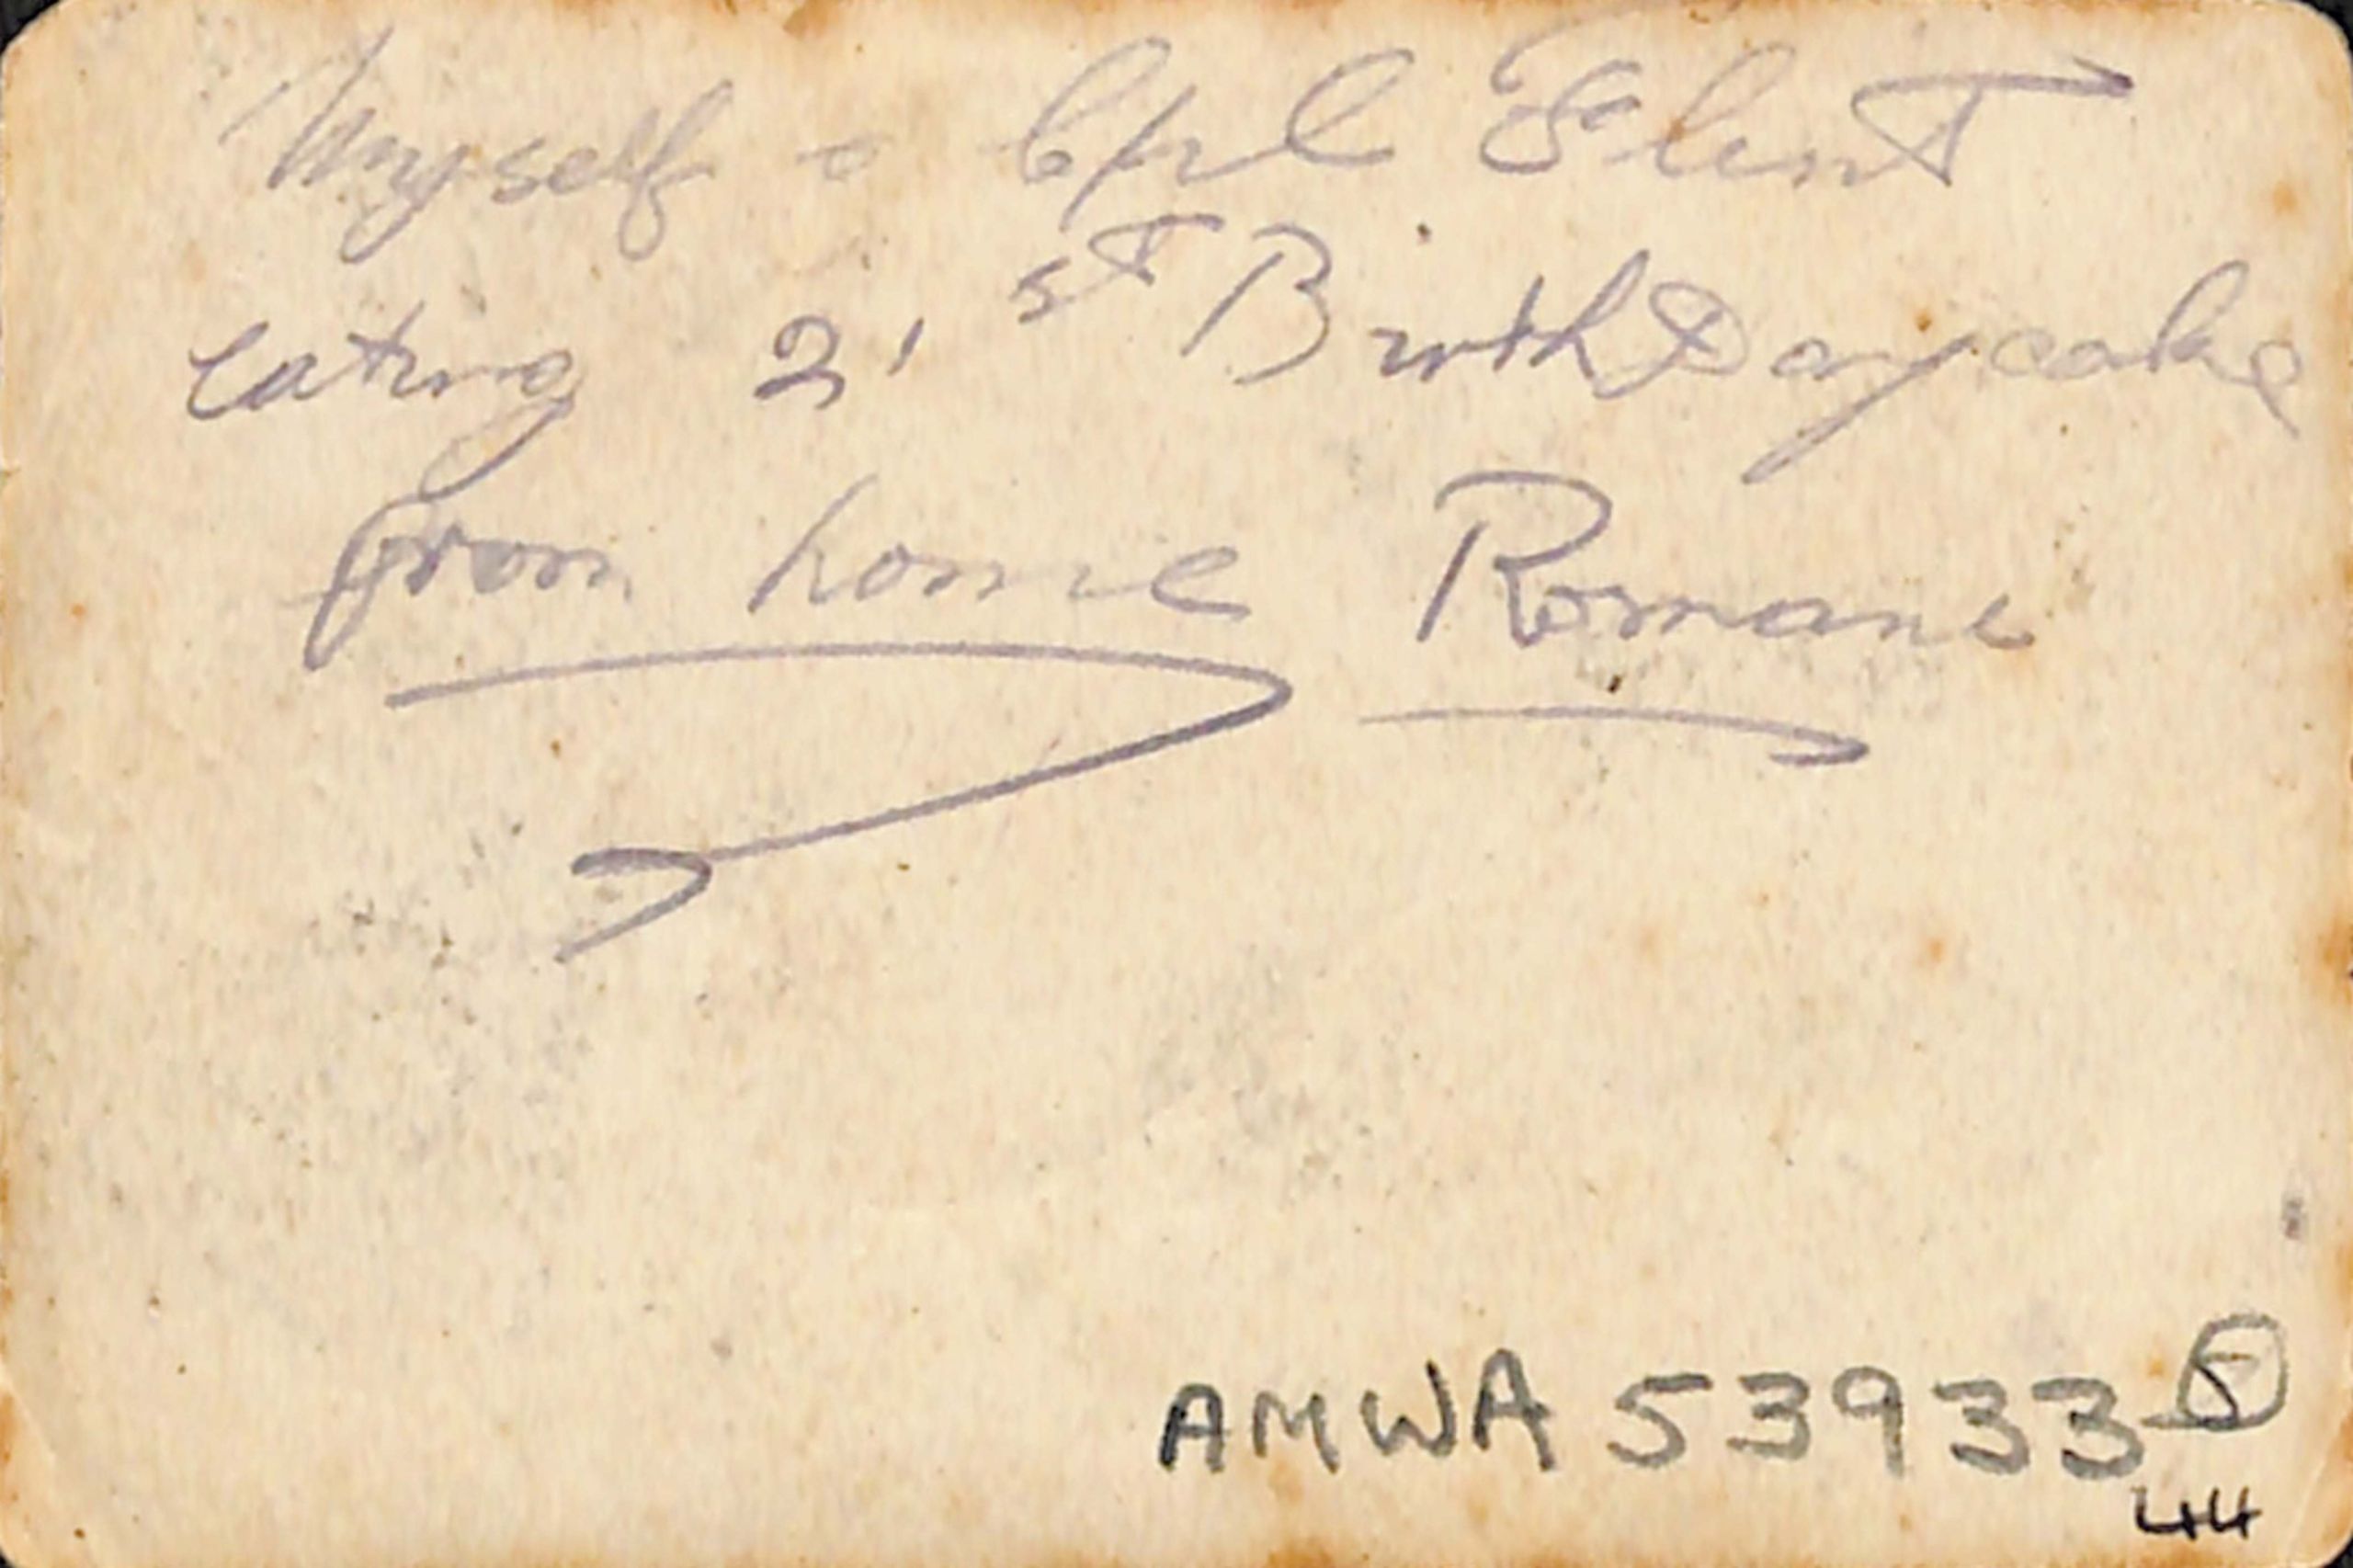 Myself & Cpl Flint
eating 21st BirthDay cake
from home Romane
AMWA 53933 5
44